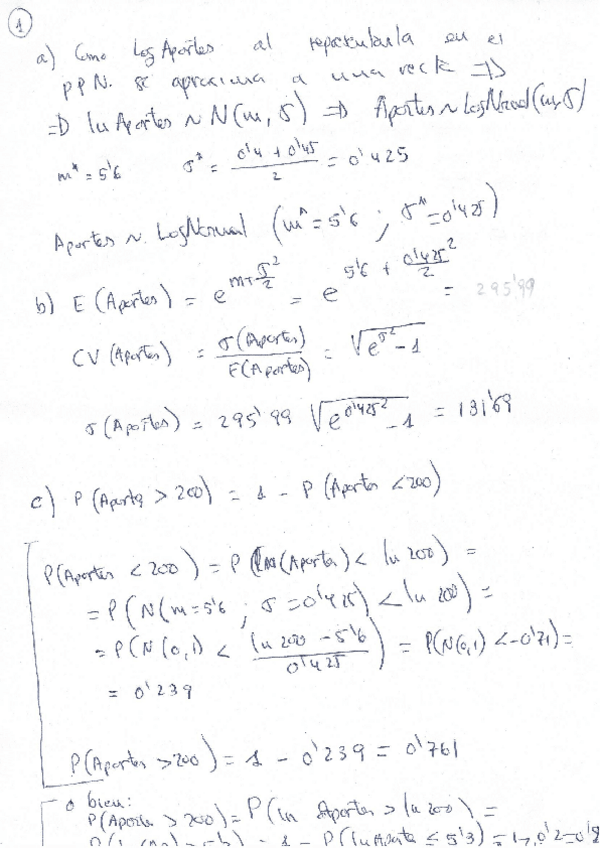 1
a) Como Log Aportes al representarla en el
PPN. se aproxima a una recta =>
=> ln Aportes ~ N(m, σ) => Aportes ~ LogNormal(m,σ)
m* = 5'6 σ* = (0'4 + 0'45)/2 = 0'425
Aportes ~ LogNormal (m^ = 5'6 ; σ^ = 0'425)
b) E (Aportes) = e^(m+σ²/2) = e^(5'6 + 0'425²/2) = 295'99
CV (Aportes) = σ(Aportes)/E(Aportes) = √(e^σ² - 1)
σ (Aportes) = 295'99 √(e^0'425² - 1) = 131'69
c) P (Aportes > 200) = 1 - P (Aportes < 200)
P(Aportes < 200) = P (ln(Aportes) < ln 200) =
= P(N(m=5'6 ; σ=0'425) < ln 200) =
= P(N(0,1) < (ln 200 - 5'6)/0'425) = P(N(0,1) < -0'71) =
= 0'239
P(Aportes > 200) = 1 - 0'239 = 0'761
o bien:
P(Aportes > 200) = P(ln Aportes > ln 200) =
= 1 - P(ln Aporte ≤ 5'3) = 1 - 0'2 = 0'8